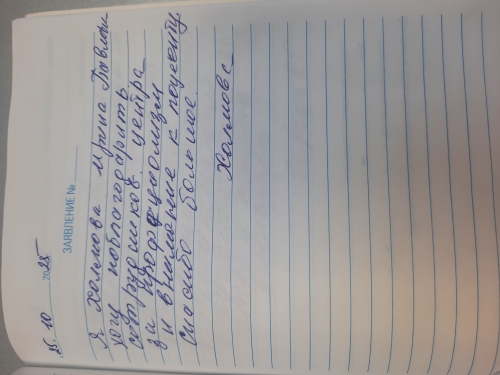 25. 10 2025
ЗАЯВЛЕНИЕ №
Я Холмова Ирина Павловн
хочу поблагодарить
сотрудников центра
за профецианолизм
и внимание к пациенту
Спасибо большое.
Холмова